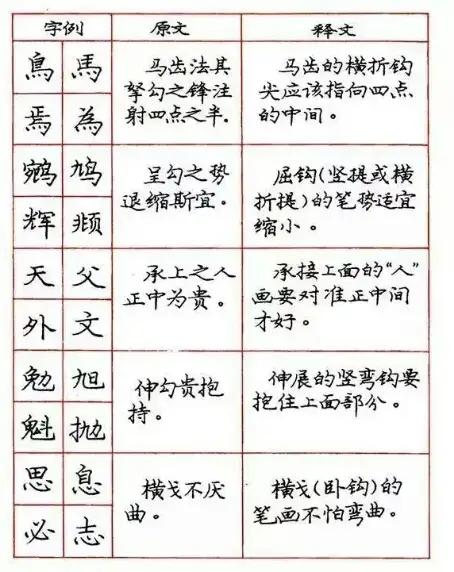 字例 原文 释文
鳥 馬
焉 為
马齿法具
挐勾之锋注
射四点之半.
马齿的横折钩
尖应该指向四点
的中间。
鹓 鸠
辉 頫
呈勾之势
退缩斯宜。
屈钩(竖提或横
折提)的笔势适宜
缩小。
天 父
外 文
承上之人
正中为贵。
承接上面的“人”
画要对准正中间
才好。
勉 旭
魁 抛
伸勾贵抱
持。
伸展的竖弯钩要
抱住上面部分。
思 息
必 志
横戈不厌
曲。
横戈(卧钩)的
笔画不怕弯曲。